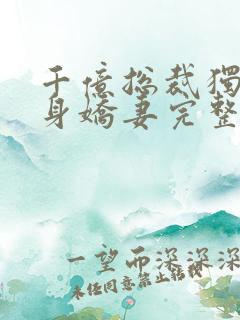 千億總裁獨
身嬌妻完整
一望而深深深
未經同意禁止轉載